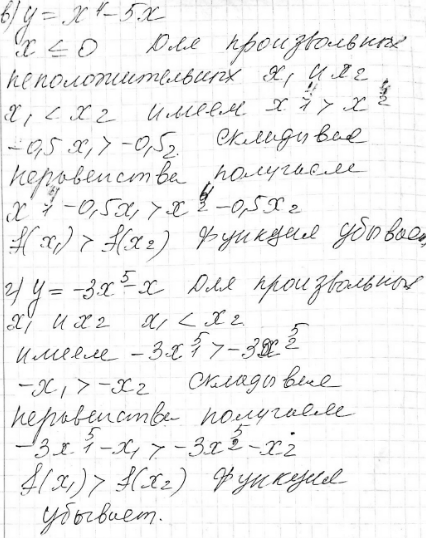 в) y = x⁴ - 5x
x ≤ 0 Для произвольных
неположительных x₁ и x₂
x₁ < x₂ имеем x₁⁴ > x₂⁴
-0,5x₁ > -0,5₂ складывае
неравенства получаем
x₁⁴ - 0,5x₁ > x₂⁴ - 0,5x₂
f(x₁) > f(x₂) функция убывает
г) y = -3x⁵ - x Для произвольных
x₁ и x₂ x₁ < x₂
имеем -3x₁⁵ > -3x₂⁵
-x₁ > -x₂ складывае
неравенства получаем
-3x₁⁵ - x₁ > -3x₂⁵ - x₂
f(x₁) > f(x₂) функция
убывает.